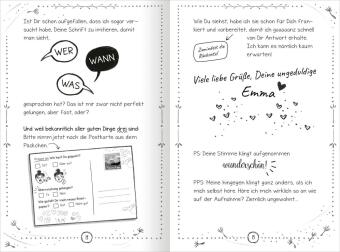 Ist Dir schon aufgefallen, dass ich sogar ver-
sucht habe, Deine Schrift zu imitieren, damit
man sieht,
WER
WANN
WAS
gesprochen hat? Das ist mir zwar nicht perfekt
gelungen, aber fast, oder?
Und weil bekanntlich aller guten Dinge drei sind:
Bitte nimm jetzt noch die Postkarte aus dem
Päckchen.
8
Wie Du siehst, habe ich sie schon für Dich fran-
kiert und vorbereitet, damit ich gaaaanz schnell
von Dir Antwort erhalte.
Ich kann es nämlich kaum
erwarten!
Zumindest die
Rückseite!
Viele liebe Grüße, Deine ungeduldige
Emma
PS: Deine Stimme klingt aufgenommen
wunderschön!
PPS: Meine hingegen klingt ganz anders, als ich
mich selbst höre. Höre ich mich wirklich so an wie
auf der Aufnahme? Ziemlich ungewohnt...
8